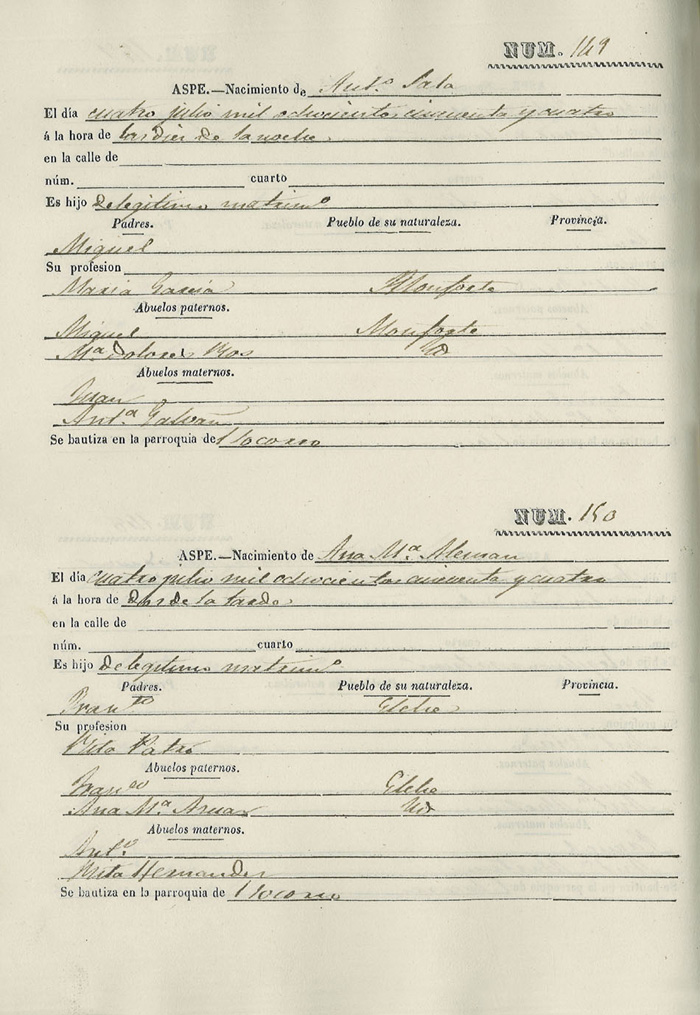 NUM. 149
ASPE.—Nacimiento de Ant.º Sala
El día cuatro julio mil ochocientos cincuenta y cuatro
á la hora de las diez de la noche
en la calle de
núm. cuarto
Es hijo de legitimo matrim.º
Padres. Pueblo de su naturaleza. Provincia.
Miguel
Su profesion
Maria Garcia Monforte
Abuelos paternos.
Miguel Monforte
M.ª Dolores Bos Id
Abuelos maternos.
Juan
Ant.ª Galvañ
Se bautiza en la parroquia de Socorro
NUM. 150
ASPE.—Nacimiento de Ana M.ª Aleman
El día cuatro julio mil ochocientos cincuenta y cuatro
á la hora de dos de la tarde
en la calle de
núm. cuarto
Es hijo de legitimo matrim.º
Padres. Pueblo de su naturaleza. Provincia.
Fran.co Elche
Su profesion
Abuelos paternos.
Fran.co Elche
Ana M.ª Aznar Id
Abuelos maternos.
Ant.º
Rita Hernandez
Se bautiza en la parroquia de Socorro